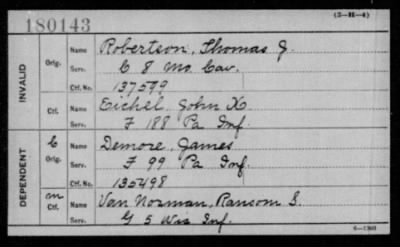 180143 (3-H-4)
INVALID
Orig. Name Robertson, Thomas J.
Serv. C 8 Mo. Cav.
Ctf. No. 137599
Ctf. Name Eichel, John K
Serv. F 188 Pa Inf.
DEPENDENT
C Orig. Name Demore, James
Serv. F 99 Pa Inf.
Ctf. No. 135498
m Ctf. Name Van Norman, Ransom S.
Serv. G 5 Wis Inf.